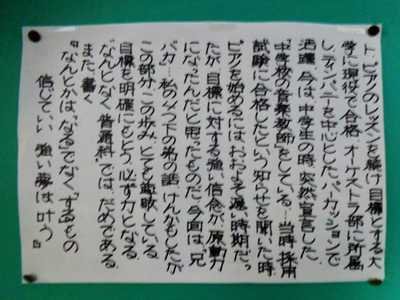 ト、ピアノのレッスンを続け目標とする大
学に現役で合格、オーケストラ部に所属
し、ティンパニーを中心としたパーカッションで
活躍、今は、中学生の時、突然宣言した
「中学校の音楽教師」をしている…当時、採用
試験に合格したという知らせを聞いた時
ピアノを始めるには、おおよそ遅い時期だっ
たが、目標に対する強い信念が、原動力
になったんだと思ったものだ。今回は、兄
バカ…私のみつ下の弟の話、けんかもしたが
この部分、この歩み、とても敬服している
目標を明確にもとう、必ず力となる
なんとなく普通科では、だめである
また、書く
『なんとかは、なるでなく、するもの
信じていい 強い夢は叶う』